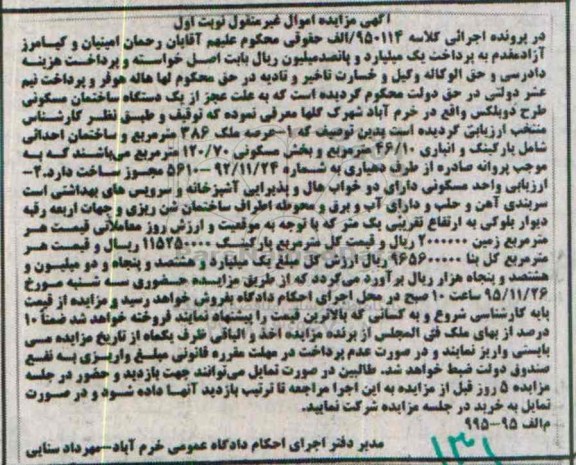 آگهی مزایده اموال غیرمنقول نوبت اول
در پرونده اجرائی کلاسه ۱۱۴-۹۵/الف حقوقی محکوم علیهم آقایان رحمان امینیان و کیامرز
آزادمقدم به پرداخت یک میلیارد و پانصدمیلیون ریال بابت اصل خواسته و پرداخت هزینه
دادرسی و حق الوکاله وکیل و خسارت تاخیر و تادیه در حق محکوم لها هاله هوفر و پرداخت نیم
عشر دولتی در حق دولت محکوم گردیده است که به علت عجز از یک دستگاه ساختمان مسکونی
طرح دوبلکس واقع در خرم آباد شهرک گلها معرفی نموده که توقیف و طبق نظر کارشناس
منتخب ارزیابی گردیده است بدین توصیف که ۱-عرصه ملک ۳۸۶ مترمربع و ساختمان احداثی
شامل پارکینگ و انباری ۴۶/۱۰ مترمربع و بخش مسکونی ۱۲۰/۷۰ مترمربع می‌باشند که به
موجب پروانه صادره از طرف دهیاری به شماره ۹۲/۱۱/۲۴-۵۶۱۰ مجوز ساخت دارد.۲-
ارزیابی واحد مسکونی دارای دو خواب هال و پذیرایی آشپزخانه و سرویس های بهداشتی است
سربندی آهن و حلب و دارای آب و برق و محوطه اطراف ساختمان شن ریزی و جهات اربعه رقبه
دیوار بلوکی به ارتفاع تقریبی یک متر که با توجه به موقعیت و ارزش روز معاملاتی قیمت هر
مترمربع زمین ۲۰۰۰۰۰۰ ریال و قیمت کل مترمربع پارکینگ ۱۱۵۲۵۰۰۰۰ ریال و قیمت هر
مترمربع کل بنا ۹۶۵۶۰۰۰۰۰ ریال ارزش کل مبلغ یک میلیارد و هشتصد و پنجاه و دو میلیون و
هشتصد و پنجاه هزار ریال برآورد می‌گردد که از طریق مزایده حضوری سه شنبه مورخ
۹۵/۱۱/۲۶ ساعت ۱۰ صبح در محل اجرای احکام دادگاه بفروش خواهد رسید و مزایده از قیمت
پایه کارشناسی شروع و به کسانی که بالاترین قیمت را پیشنهاد نمایند فروخته خواهد شد ضمناً ۱۰
درصد از بهای ملک فی المجلس از برنده مزایده اخذ و الباقی ظرف یکماه از تاریخ مزایده می
بایستی واریز نمایند و در صورت عدم پرداخت در مهلت مقرره قانونی مبلغ واریزی به نفع
صندوق دولت ضبط خواهد شد. طالبین در صورت تمایل می‌توانند جهت بازدید و حضور در جلسه
مزایده ۵ روز قبل از مزایده به این اجرا مراجعه تا ترتیب بازدید آنها داده شود و در صورت
تمایل به خرید در جلسه مزایده شرکت نمایید.
م‌الف ۹۵-۹۹۵
مدیر دفتر اجرای احکام دادگاه عمومی خرم آباد-مهرداد سنایی
۱۳۱